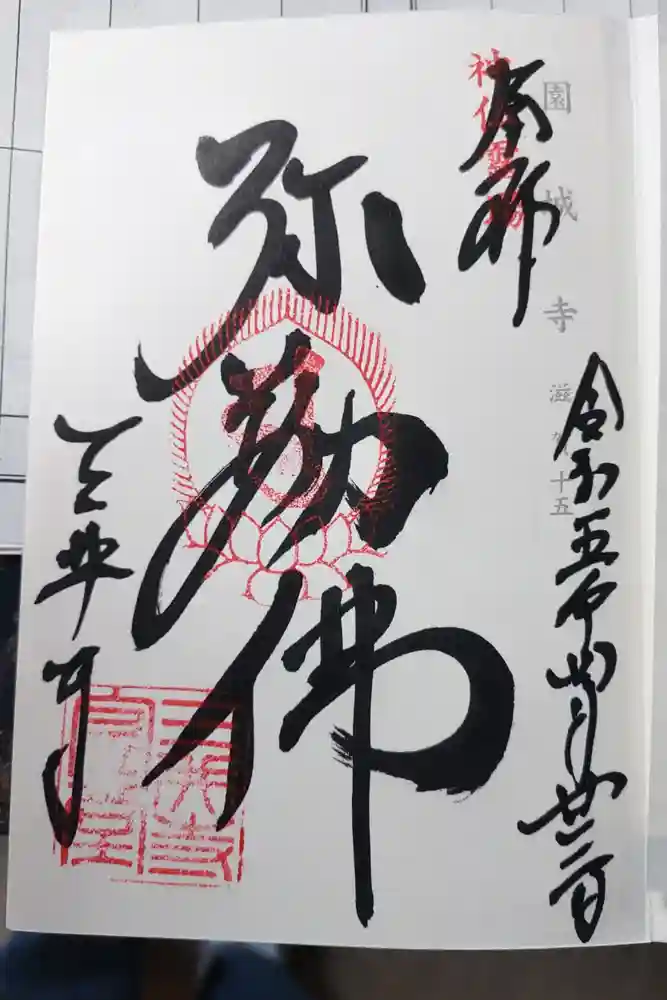 園城寺 滋賀十五
奉拝
神仏霊場
令和五年四月廿二日
弥勒佛
三井寺